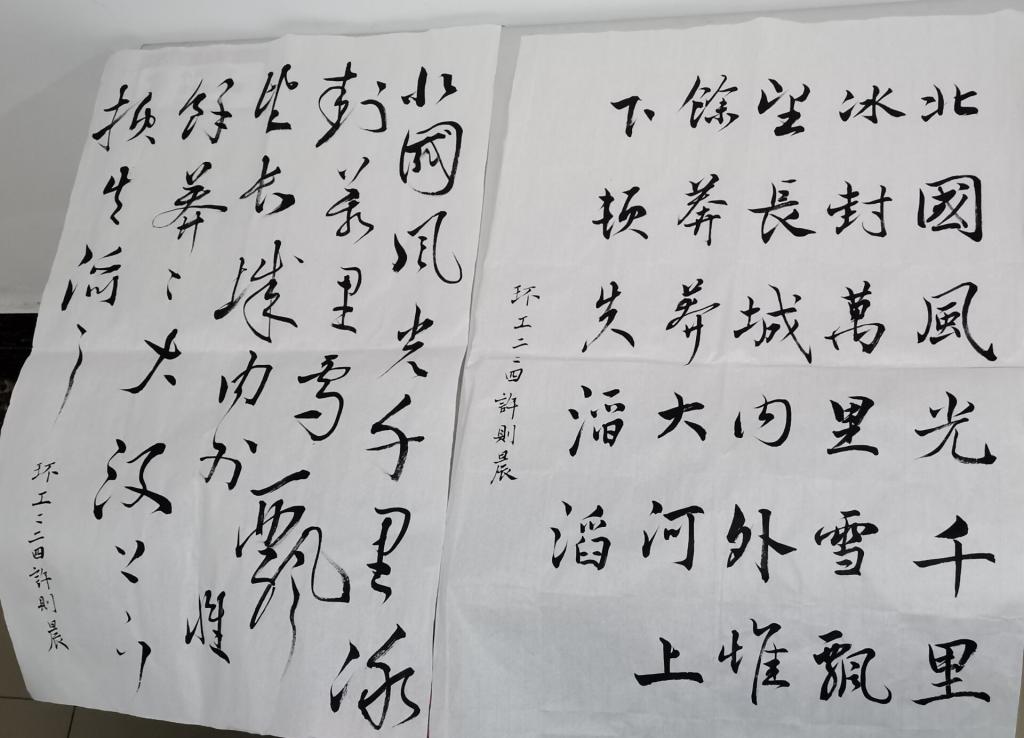 北國風光千里
冰封萬里雪飄
望長城内外惟
餘莽莽大河上
下頓失滔滔
环工二二四許則晨
北國風光千里冰
封萬里雪飄
望長城内外惟
餘莽〻大河上下
頓失滔〻
环工二二四許則晨